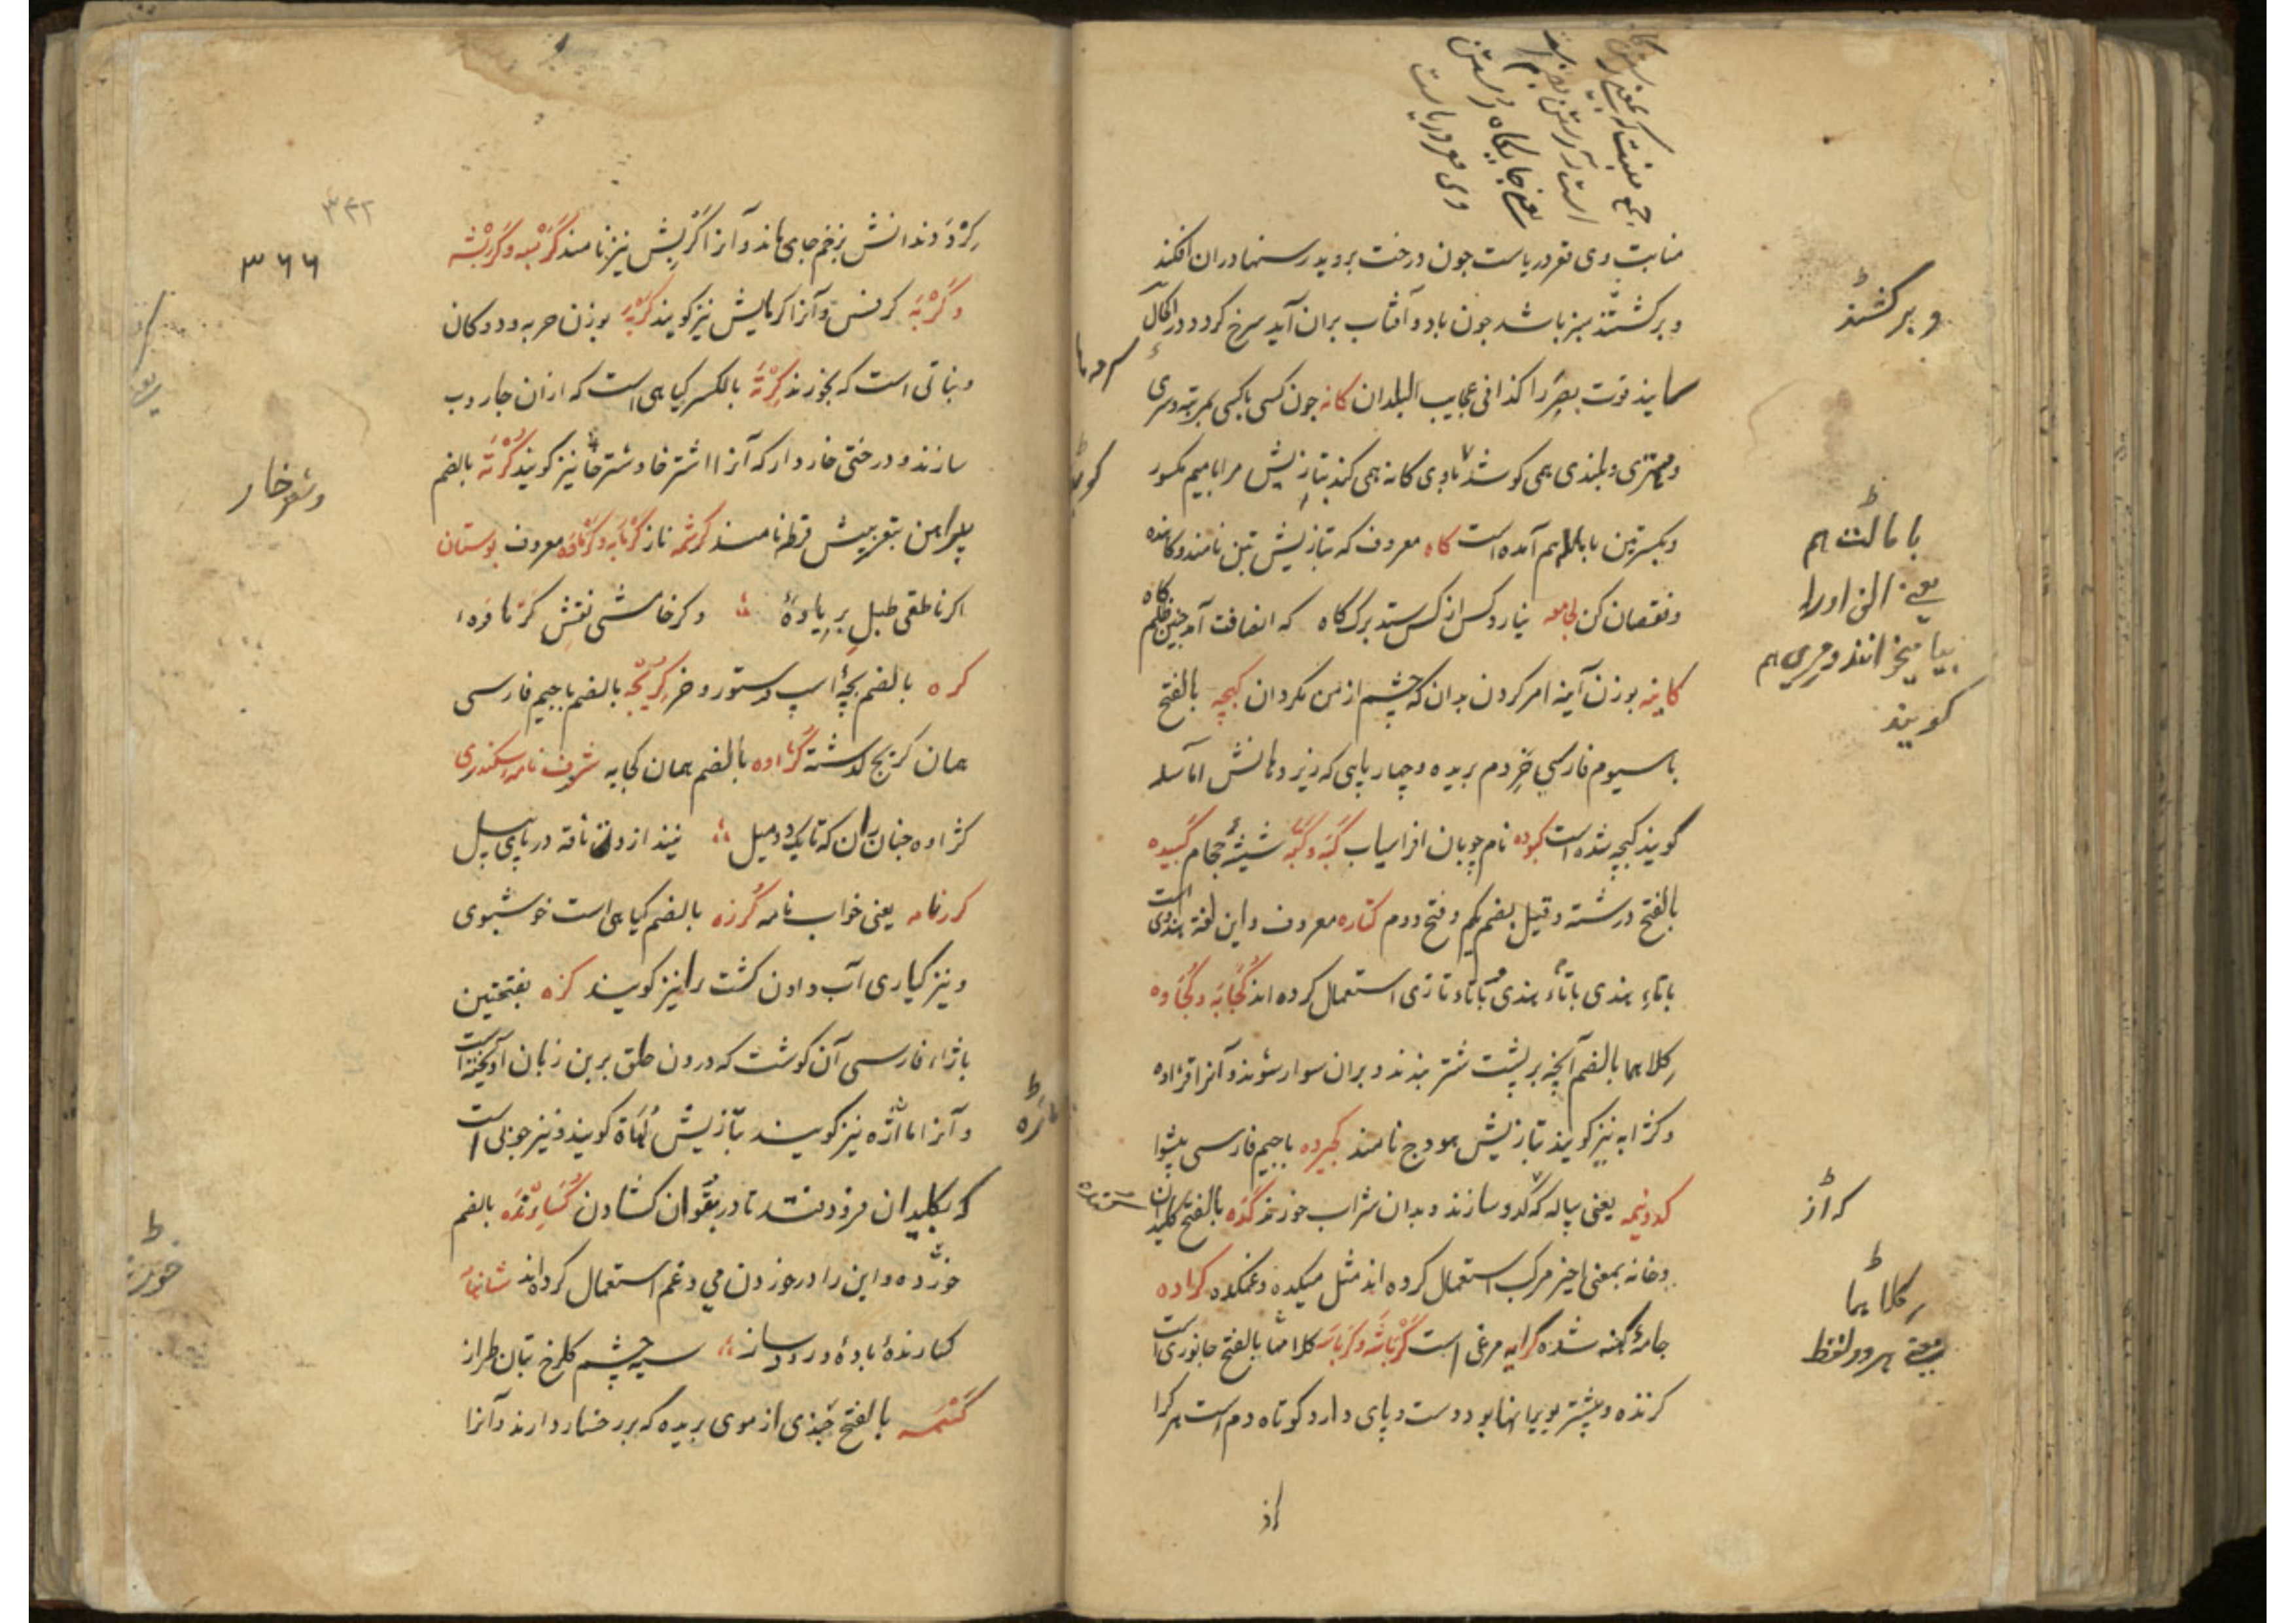 منابت وی قعر دریاست چون درخت بروید رسنها دران افکنند
و برکشند سبز باشد چون باد و آفتاب بران آید سرخ کردد در اکحال
سایند قوت بصر را کذا فی عجایب البلدان کانه چون کسی باکسی بمرتبه وسری
ومهتری وبلندی همی کوشد باوی کانه همی کند بتازیش مرابا میم مکسور
هم آمده است کاه معروف که بتازیش تبن نامند وکاهنده
ونقصان کن لجامعه نیارد کس از کس ستد برگ کاه که انصافت آمد چنین ظلم کاه
کاینه بوزن آینه امر کردن بدان که چشم از من مگردان کبجه بالفتح
باسیوم فارسی خر دم بریده و چهارپایی که زیر دهانش آماسد
گویند کبجه شده است کبوده نام چوپان افراسیاب کبه وکپه شیشهٔ حجام کبیده
بالفتح درشته وقیل بضم یکم وفتح دوم کتاره معروف واین لغة هندوی است
باتاء هندی باتاء هندی باتاء تازی استعمال کرده اند کجابه وکجاوه
کلاهما بالضم آنچه بر پشت شتر بندند وبران سوار شوند وآنرا قزاوه
وکژابه نیز گویند بتازیش هودج نامند کجیرده باجیم فارسی پیشوا
کدونیمه یعنی پیاله که کدو سازند وبدان شراب خورند کده بالفتح کلیدان
وخانه بمعنی اخیر مرکب استعمال کرده اند مثل میکده وغمکده کراده
جامهٔ کهنه شده کرایه مرغی است کرباشه وکرباسه کلاهما بالفتح جانوری است
کزنده وبیشتر بویرانها بود دست وپای دارد کوتاه دم است هرکرا
از
وبرکشند
هم
یعنی
بیامیزانند ومری هم
گویند
که از
کلاهما
یعنی هر دو لفظ
جمع منبت که بمعنی
است
یعنی جایگاه رستن
وی قعر دریاست
۳۶۶
کزد دندانش بزخم جای ماند وآنرا کربش نیز نامند کربسه وکربشه
وکربه کرفس وآنرا کرمایش نیز گویند کربه بوزن حربه و دوکان
ونباتی است که بخورند کرته بالکسر گیاهی است که ازان جاروب
سازند ودرختی خاردار که آنرا اشترخا وشترخا نیز گویند کرته بالضم
پیراهن بتعریبش قرطه نامند کرشمه ناز کرنابه وکرنافه معروف بوستان
اگر ناطقی طبل بر یاوهٔ وگر خامشی نقش کرماوهٔ
کره بالضم بچهٔ اسپ وستور وخر کریجه بالضم باجیم فارسی
همان کربج گذشته کژاوه بالضم همان کجابه شرف نامهٔ سکندری
کژاوه چنان ران که تا یک دو میل نیفتد ازو نافه در پای پیل
کررنامه یعنی خواب نامه کرزه بالضم گیاهی است خوشبوی
ونیز کیاری آب دادن کشت را نیز گویند کژه بفتحتین
بازاء فارسی آن گوشت که درون حلق بر بن زبان آویخته است
وآنرا ملاژه نیز گویند بتازیش لهاة گویند ونیز چوبی است
که بکلیدان فرو افتد تا در بتوان کشادن کسارنده بالضم
خورده واین را در خوردن می وغم استعمال کرده اند شاهنامه
کسارندهٔ باده ورود ساز سیه چشم گلرخ بتان طراز
کستمه بالفتح چیزی از موی بریده که بر رخسار دارند وآنرا
وشترخار